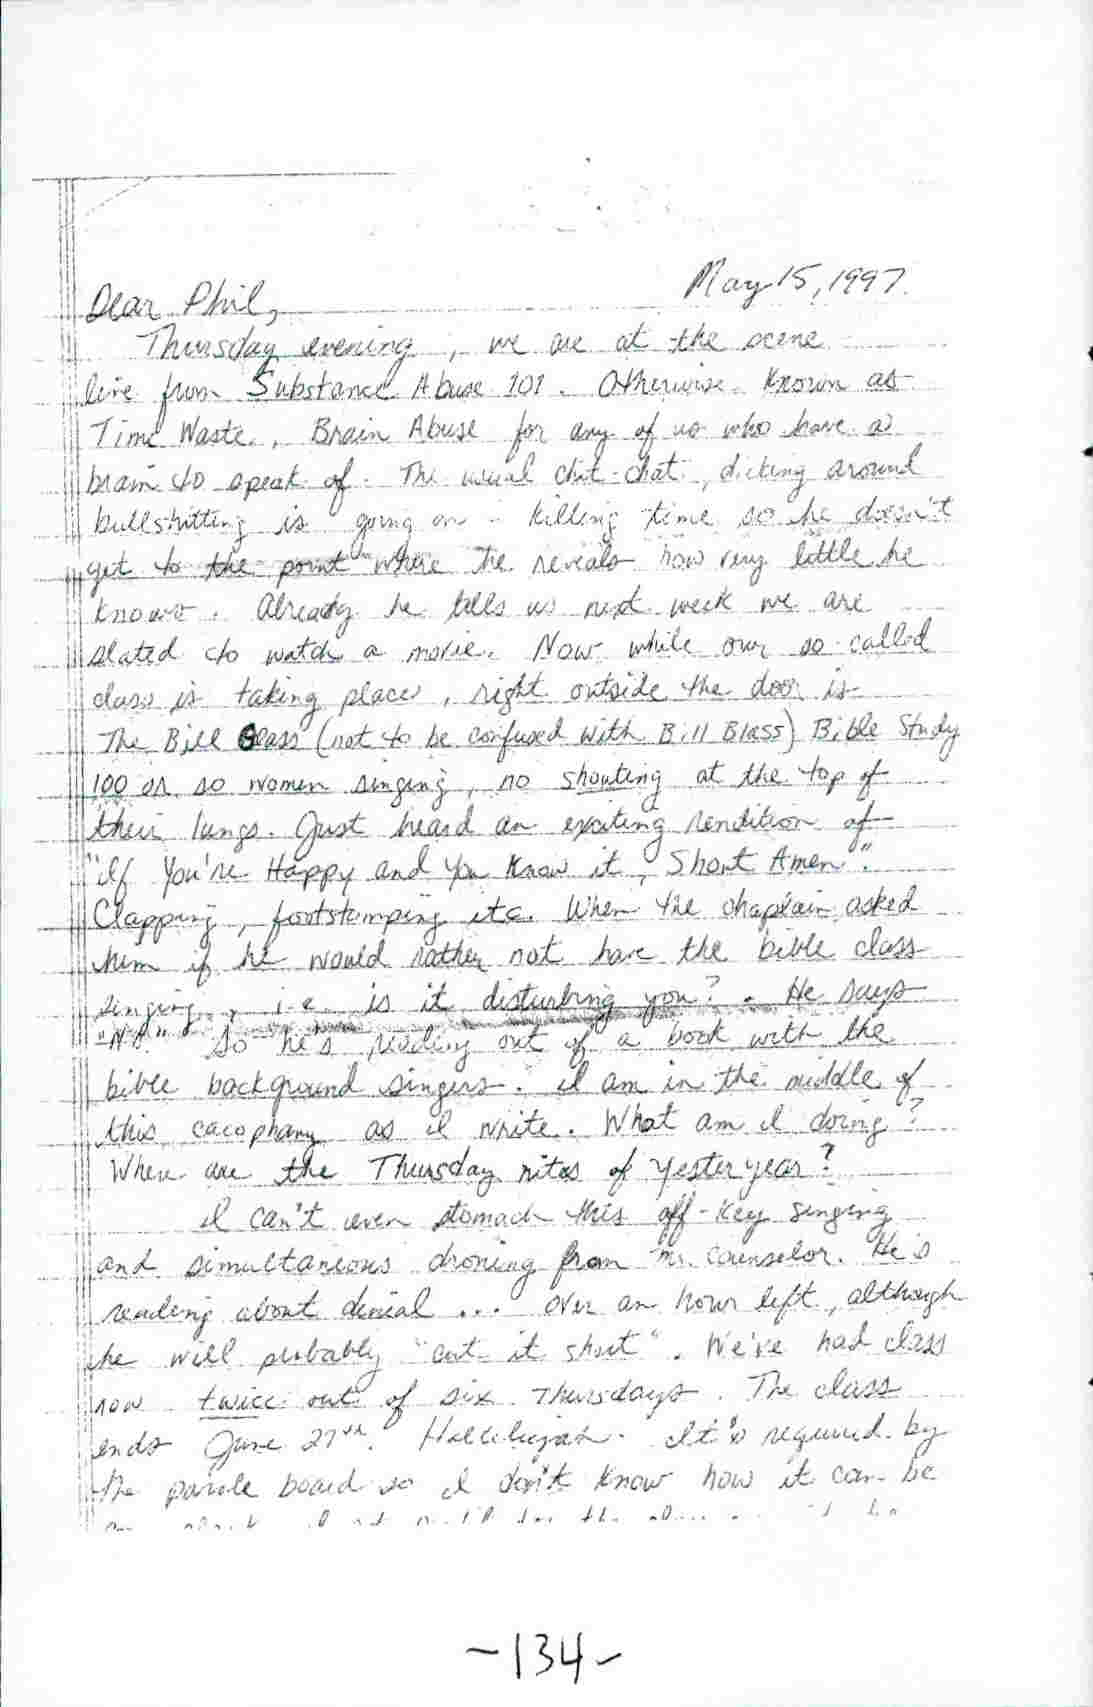 May 15, 1997.
Dear Phil,
Thursday evening, we are at the scene
live from Substance Abuse 101. Otherwise known as
Time Waste., Brain Abuse for any of us who have a
brain to speak of. The usual chit-chat, dicking around
bullshitting is going on - killing time so he doesn't
get to the point where he reveals how very little he
knows. Already he tells us next week we are
slated to watch a movie. Now while our so-called
class is taking place, right outside the door is
The Bill Glass (not to be confused with Bill Blass) Bible Study
100 or so women singing, no shouting at the top of
their lungs. Just heard an exciting rendition of
"If You're Happy and You Know it, Shout Amen".
Clapping, footstomping etc. When the chaplain asked
him if he would rather not have the bible class
singing, i.e. is it disturbing you?. He says
"No." So he's reading out of a book with the
bible background singers. I am in the middle of
this cacophany as I write. What am I doing?
Where are the Thursday nites of yesteryear?
I can't even stomach this off-key singing
and simultaneous droning from Mr. Counselor. He's
reading about denial ... over an hour left, although
he will probably "cut it short". We've had class
now twice out of six Thursdays. The class
ends June 27th. Hallelujah. It's required by
the parole board so I don't know how it can be
-134-